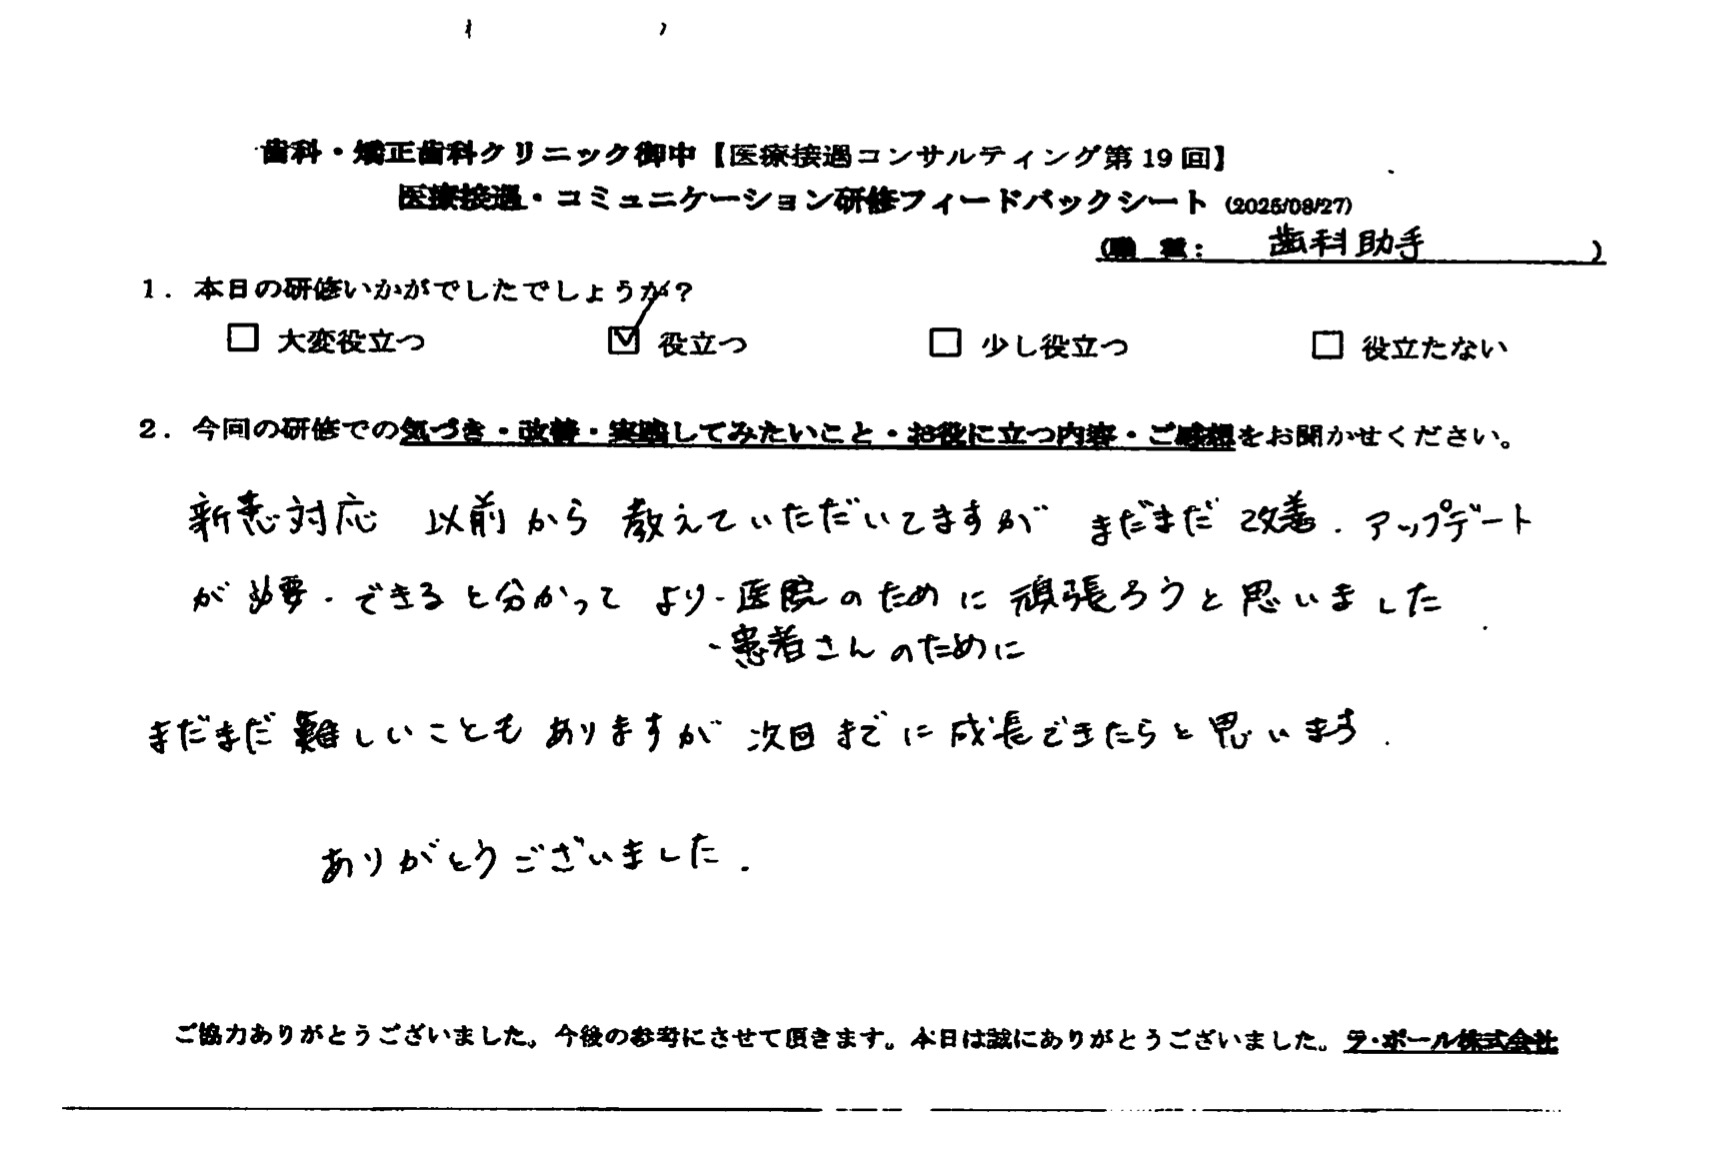 歯科・矯正歯科クリニック御中【医療接遇コンサルティング第19回】
医療接遇・コミュニケーション研修フィードバックシート (2025/08/27)
(職 種: 歯科助手 )
1. 本日の研修いかがでしたでしょうか?
□ 大変役立つ ☑ 役立つ □ 少し役立つ □ 役立たない
2. 今回の研修での気づき・改善・実践してみたいこと・お役に立つ内容・ご感想をお聞かせください。
新患対応 以前から 教えていただいてますが まだまだ 改善・アップデート
が必要・できると分かって より・医院のために頑張ろうと思いました
・患者さんのために
まだまだ難しいこともありますが 次回までに成長できたらと思います.
ありがとうございました.
ご協力ありがとうございました。今後の参考にさせて頂きます。本日は誠にありがとうございました。ラ・ポール株式会社